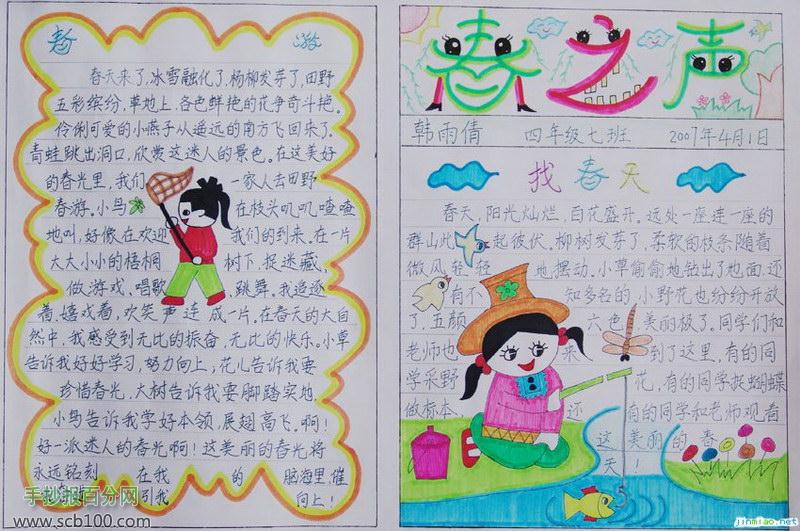 春 游
春天来了,冰雪融化了,杨柳发芽了,田野
五彩缤纷,草地上,各色鲜艳的花争奇斗艳。
伶俐可爱的小燕子从遥远的南方飞回来了。
青蛙跳出洞口,欣赏这迷人的景色。在这美好
的春光里,我们一家人去田野
春游。小鸟在枝头叽叽喳喳
地叫,好像在欢迎我们的到来。在一片
大大小小的梧桐树下,捉迷藏,
做游戏、唱歌、跳舞。我追逐
着,嬉戏着,欢笑声连成一片。在春天的大自
然中,我感受到无比的振奋,无比的快乐。小草
告诉我好好学习,努力向上,花儿告诉我要
珍惜春光,大树告诉我要脚踏实地,
小鸟告诉我学好本领,展翅高飞。啊!
好一派迷人的春光啊!这美丽的春光将
永远铭刻在我的脑海里,催
引我向上!
手抄报百分网
www.scb100.com
春之声
韩雨倩 四年级七班 2007年4月1日
找春天
春天,阳光灿烂,百花盛开。远处一座连一座的
群山此起彼伏。柳树发芽了,柔软的枝条随着
微风轻轻地摆动。小草偷偷地钻出了地面,还
有不知多名的小野花也纷纷开放
了,五颜六色,美丽极了。同学们和
老师也来到了这里,有的同
学采野花,有的同学捉蝴蝶
做标本,还有的同学和老师观看
这美丽的春
天!
jinmiao.net